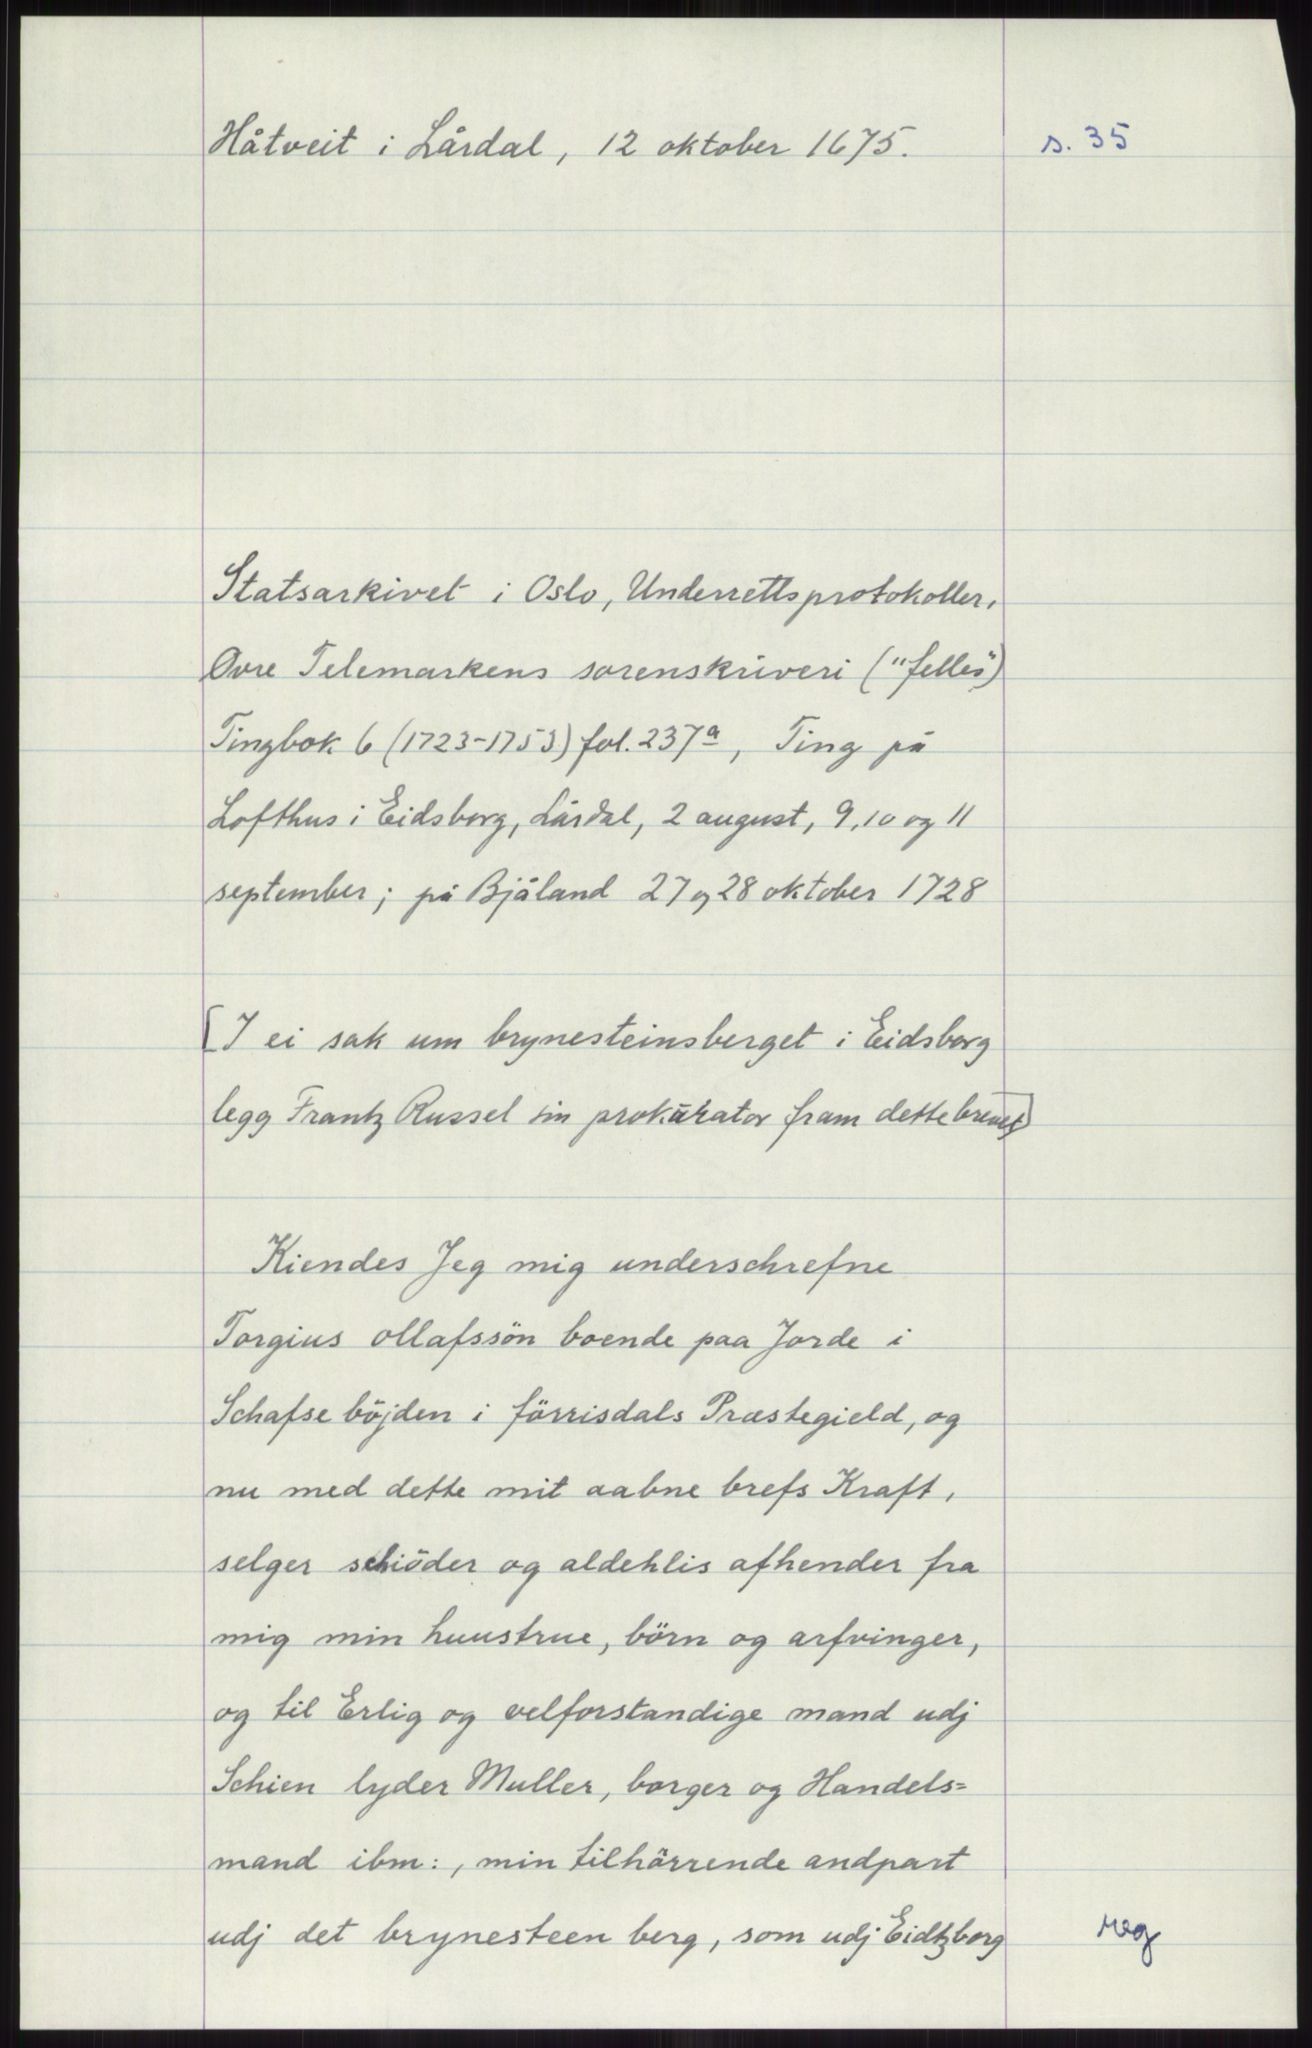 Håtveit i Lårdal, 12 oktober 1675.
s. 35
Statsarkivet i Oslo, Underrettsprotokoller,
Øvre Telemarkens sorenskriveri ("felles")
Tingbok 6 (1723-1753) fol. 237a, Ting på
Lofthus i Eidsborg, Lårdal, 2 august, 9, 10 og 11
september; på Bjåland 27 og 28 oktober 1728
[I ei sak um brynesteinsberget i Eidsborg
legg Frantz Russel sin prokurator fram dette brevet]
Kiendes Jeg mig underschrefne
Torgius ollafssön boende paa Jorde i
Schafse böjden i förrisdals Præstegield, og
nu med dette mit aabne brefs Kraft,
selger schiöder og aldehlis afhender fra
mig min huustrue, börn og arfvinger,
og til Erlig og velforstandige mand udj
Schien lyder Muller, borger og Handels=
mand ibm:, min tilhörrende andpart
udj det brynesteen berg, som udj Eidtzborg
reg